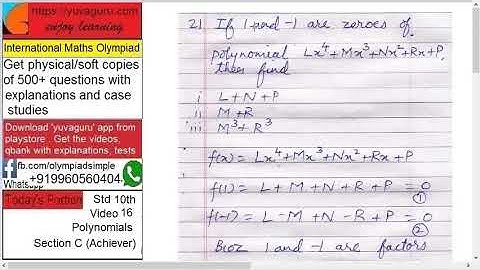 https://yuvaguru.com
enjoy learning
International Maths Olympiad
Get physical/soft copies
of 500+ questions with
explanations and case
studies
Download 'yuvaguru' app from
playstore . Get the videos,
qbank with explanations, tests
fb.com/olympiadsimple
Whatsapp +919960560404
Today's Portion
Std 10th
Video 16
Polynomials
Section C (Achiever)
21 If 1 and -1 are zeroes of
polynomial Lx⁴+Mx³+Nx²+Rx+P,
then find
i L+N+P
ii M+R
iii M³+R³
f(x) = Lx⁴+Mx³+Nx²+Rx+P
f(1) = L+M+N+R+P = 0
①
f(-1) = L-M+N-R+P = 0
②
Bcoz 1 and -1 are factors